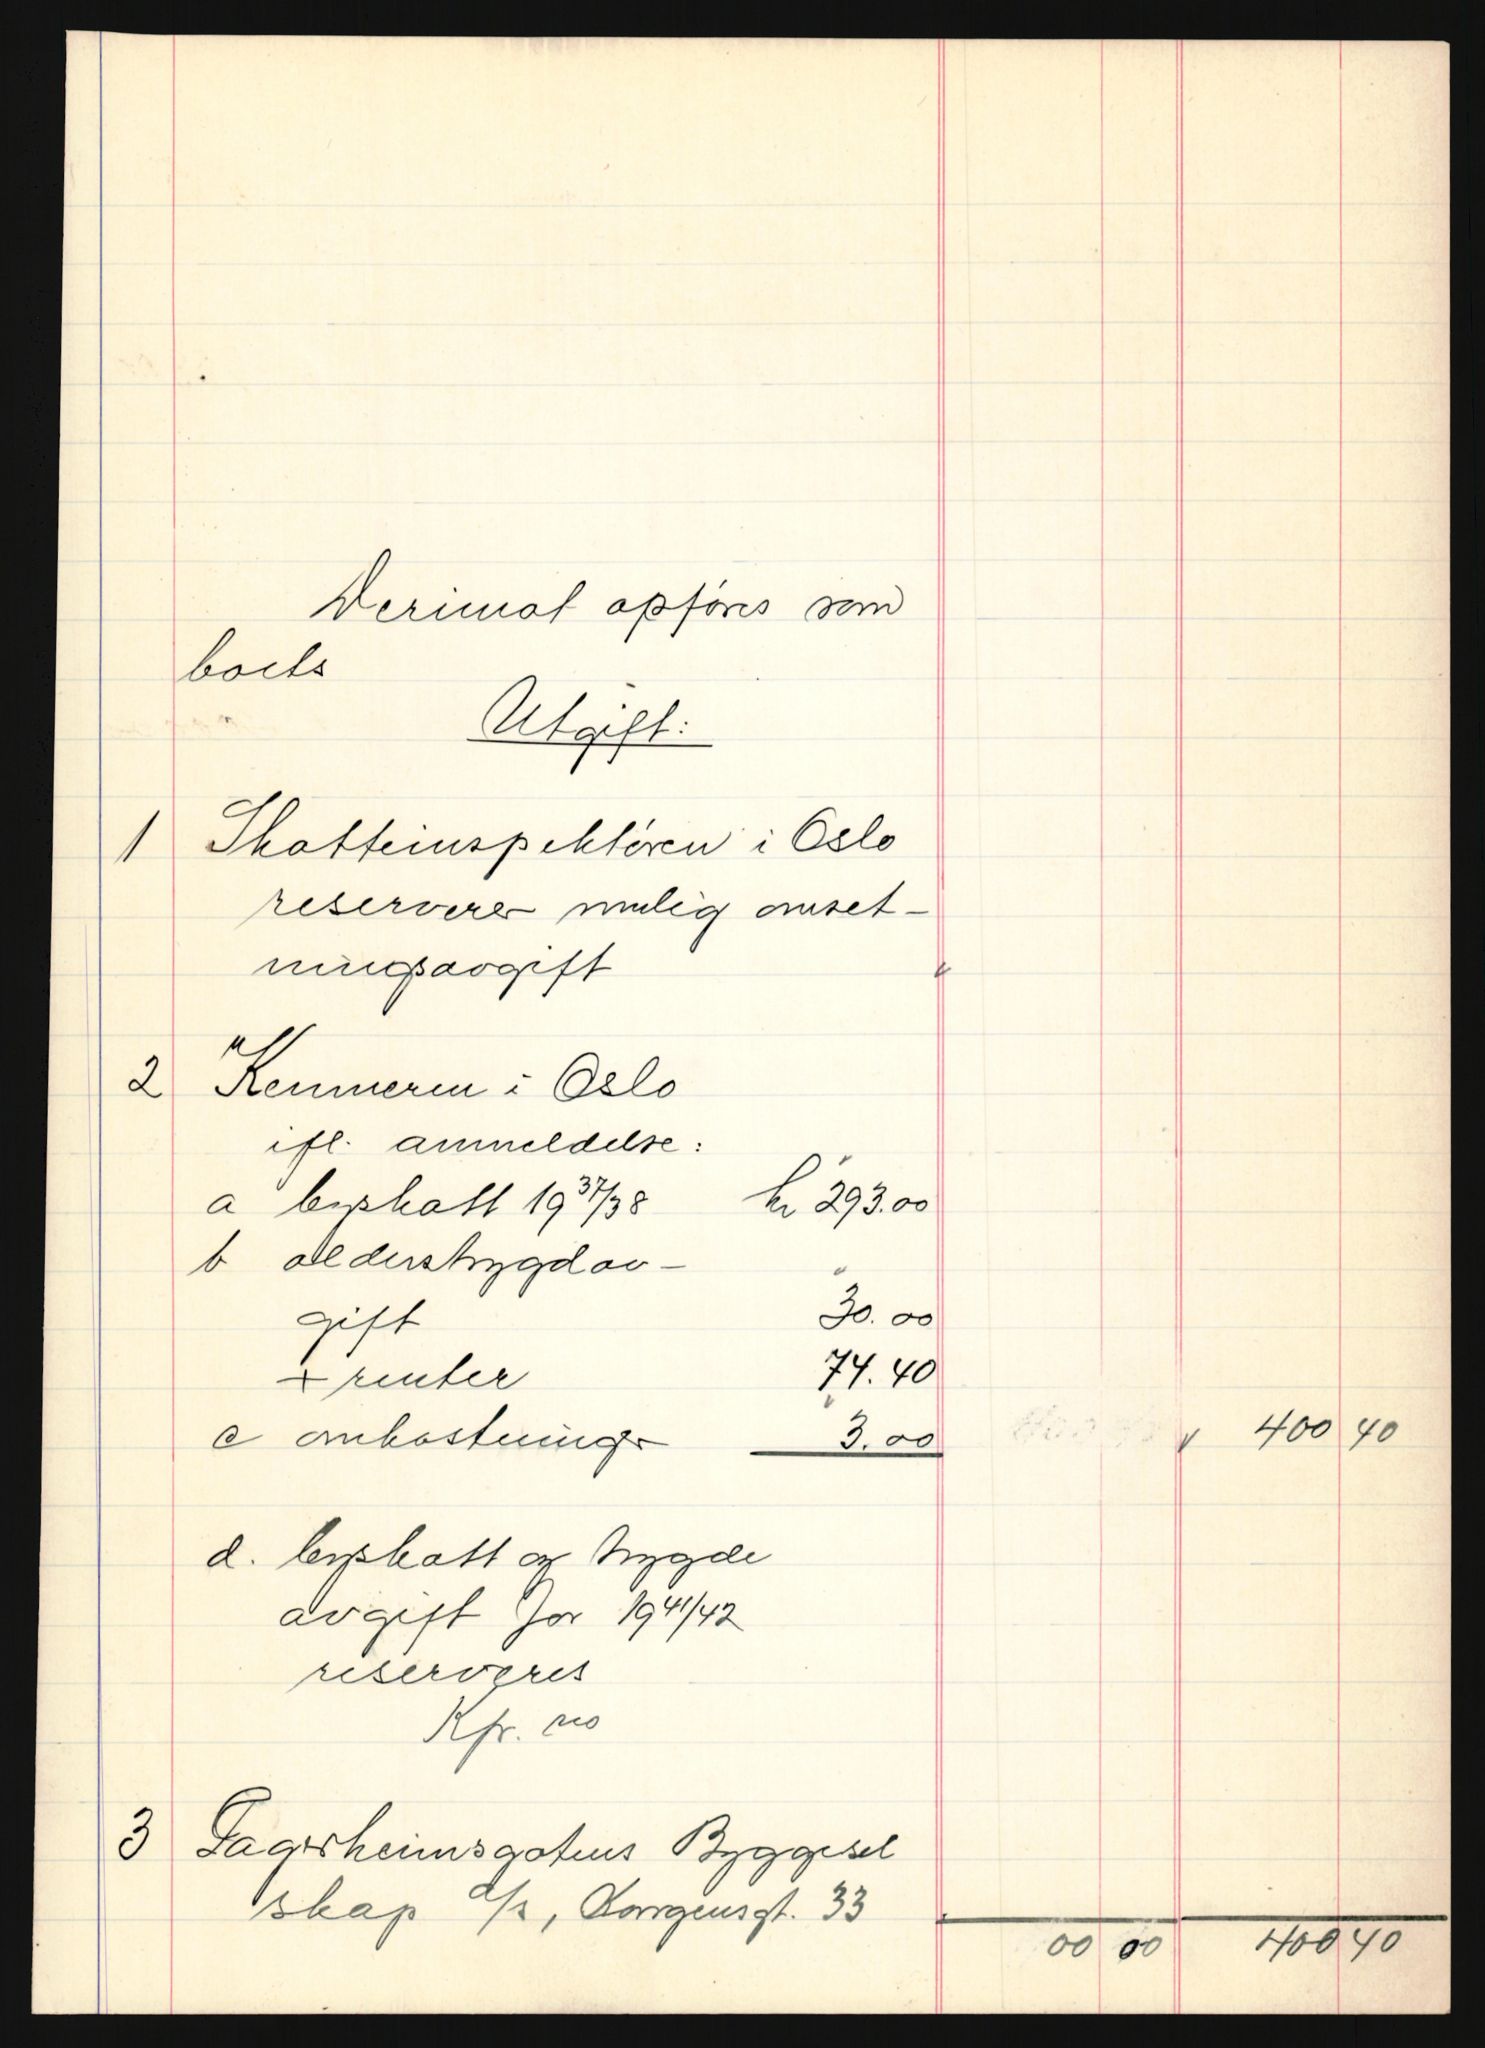 Derimot opføres som
boets
Utgift:
1 Skatteinspektøren i Oslo
reserverer mulig omset-
ningsavgift
2 Kemneren i Oslo
ifl. anmeldelse:
a byskatt 1937/38 kr 293.00
b alderstrygdav-
gift 30.00
+ renter 74.40
c omkostninger 3.00 400 40
d. byskatt og trygde
avgift for 1941/42
reserveres
Kfr. no
3 Fagerheimsgatens Byggesel
skap a/s, Kongensgt. 33
00 00 400 40